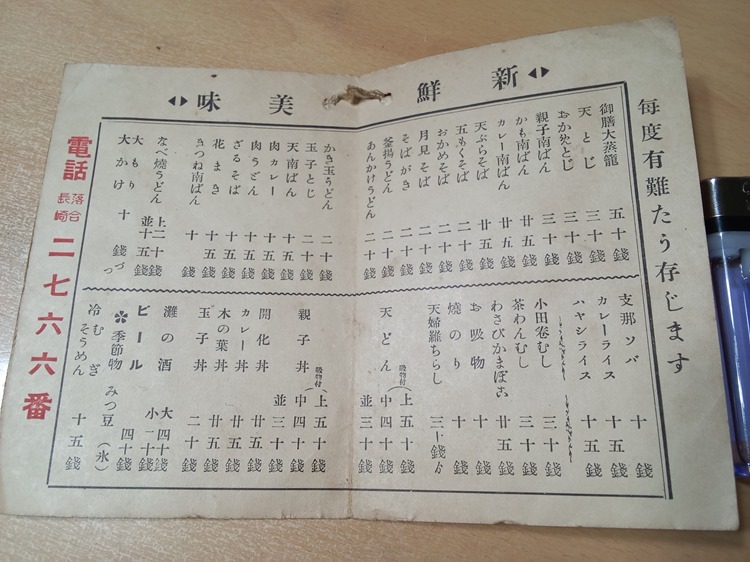 毎度有難たう存じます
新鮮美味
御膳大蒸籠 五十錢
天とじ 三十錢
おかめとじ 三十錢
親子南ばん 三十錢
かも南ばん 廿五錢
カレー南ばん 廿五錢
天ぷらそば 廿五錢
五もくそば 廿五錢
おかめそば 二十錢
月見そば 二十錢
そばがき 二十錢
釜揚うどん 二十錢
あんかけうどん 二十錢
かき玉うどん 二十錢
玉子とじ 二十錢
天南ばん 十五錢
肉カレー 十五錢
肉うどん 十五錢
ざるそば 十五錢
花まき 十五錢
きつね南ばん 十錢
なべ燒うどん 上二十錢 並十五錢
大もり
大かけ 十錢づつ
支那ソバ 十錢
カレーライス 十五錢
ハヤシライス 十五錢
小田巻むし 三十錢
茶わんむし 三十錢
わさびかまぼこ 廿五錢
お吸物 十錢
燒のり 十錢
天婦羅ちらし 三十錢
天どん 吸物付 上五十錢 中四十錢 並三十錢
親子丼 吸物付 上五十錢 中四十錢 並三十錢
開化丼 廿五錢
カレー丼 廿五錢
木の葉丼 廿五錢
玉子丼 二十錢
灘の酒 大四十錢
ビール 小二十錢 四十錢
季節物 みつ豆 (氷)
冷むぎ
そうめん 十五錢
電話 落合長崎 二七六六番